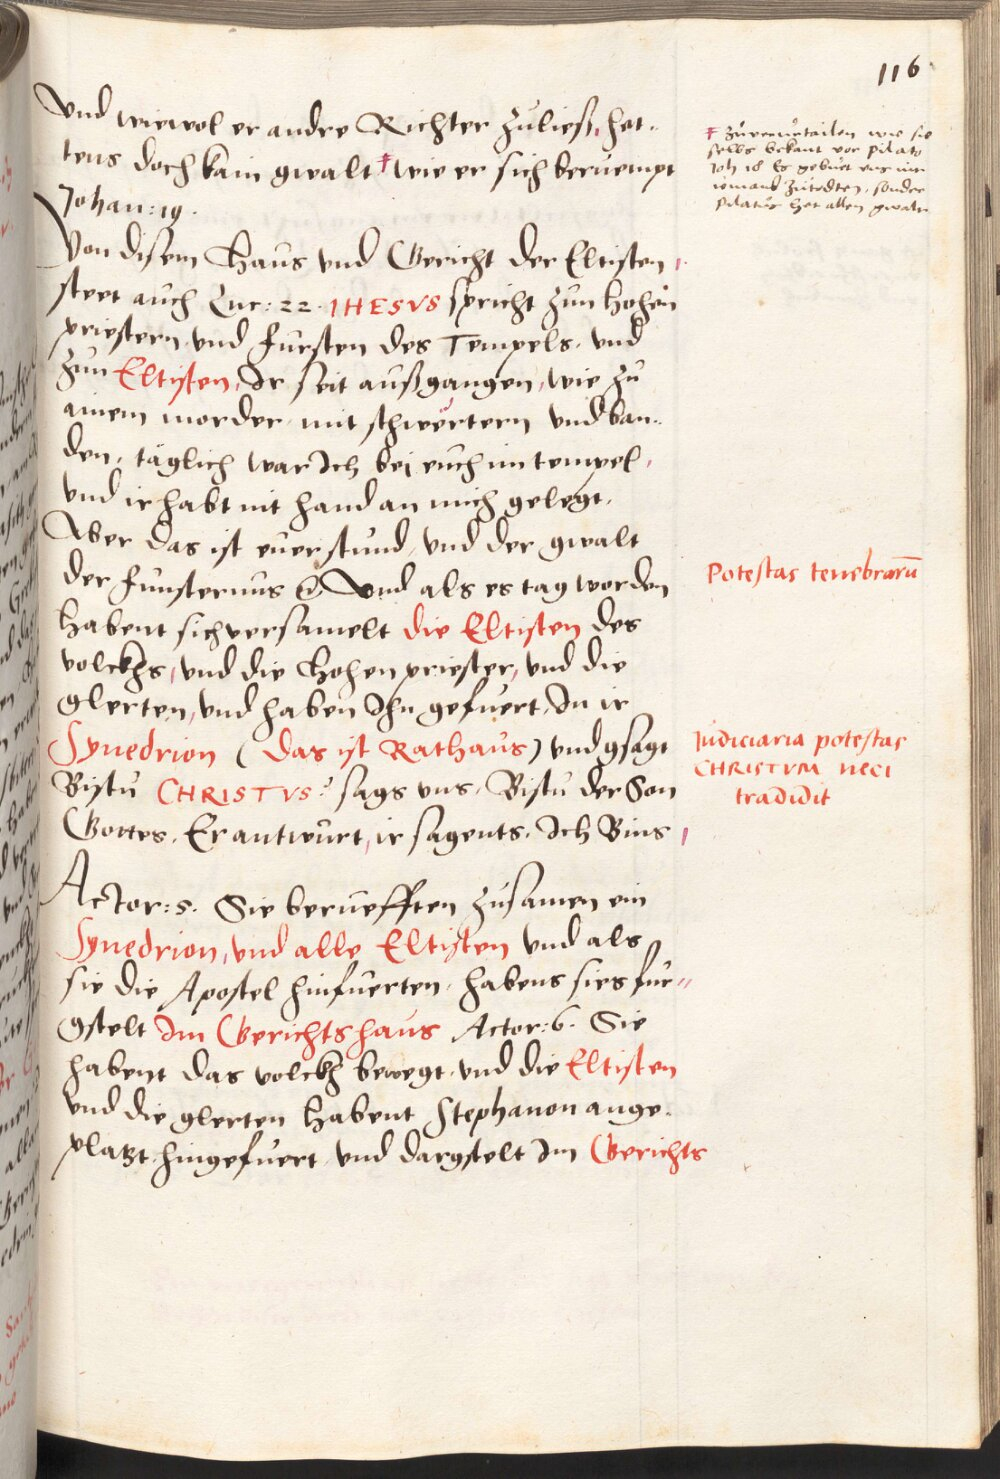 116
Und wiewol er andre Richter zuließ, het-
tens doch kain gwalt ⹋ wie er sich beruempt
Johan: 19.
Von disem Haus und Gericht der Eltisten,
steet auch Luc: 22. IHESVS spricht zun Hohen
priestern, und fursten des Tempels, und
zun Eltisten, Ir seit außgangen, wie zu
ainem morder, mit schwertern und ban-
den, täglich war Ich bei euch im tempel,
und ir habt nit hand an mich gelegt,
Aber das ist euer stund, und der gwalt
der funsternus &. Und als es tag worden
habent sich versamelt die Eltisten des
volckhs, und die Hohen priester, und die
glerten, und haben Ihn gefuert, In ir
Synedrion (das ist Rathaus) und gsagt
Bistu CHRISTVS? sags uns, Bistu der Son
Gottes, Er antwurt, ir sagents, Ich Bins,
Actor: 5. Sie beruefften zusamen ein
Synedrion, und alle Eltisten und als
sie die Apostel hinfuerten, habens sies fur-
gstelt Im Gerichtshaus Actor: 6. Sie
habent das volckh bewegt, und die Eltisten
und die glerten Habent Stephanon ange-
platzt, hingefuert, und dargstelt Im Gerichts
⹋ zuverurtailen wie sie
selbs bekant vor Pilato
Joh 18 Es geburt uns nit
iemand zutodten, sonder
Pilatus het allen gwalt
Potestas tenebrarū
Judiciaria potestas
CHRISTVM neci
tradidit